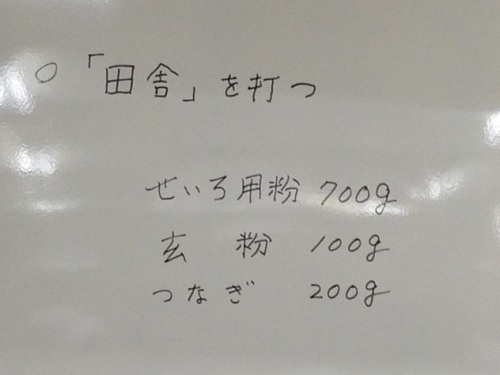 ○「田舎」を打つ
せいろ用粉 700g
玄 粉 100g
つなぎ 200g